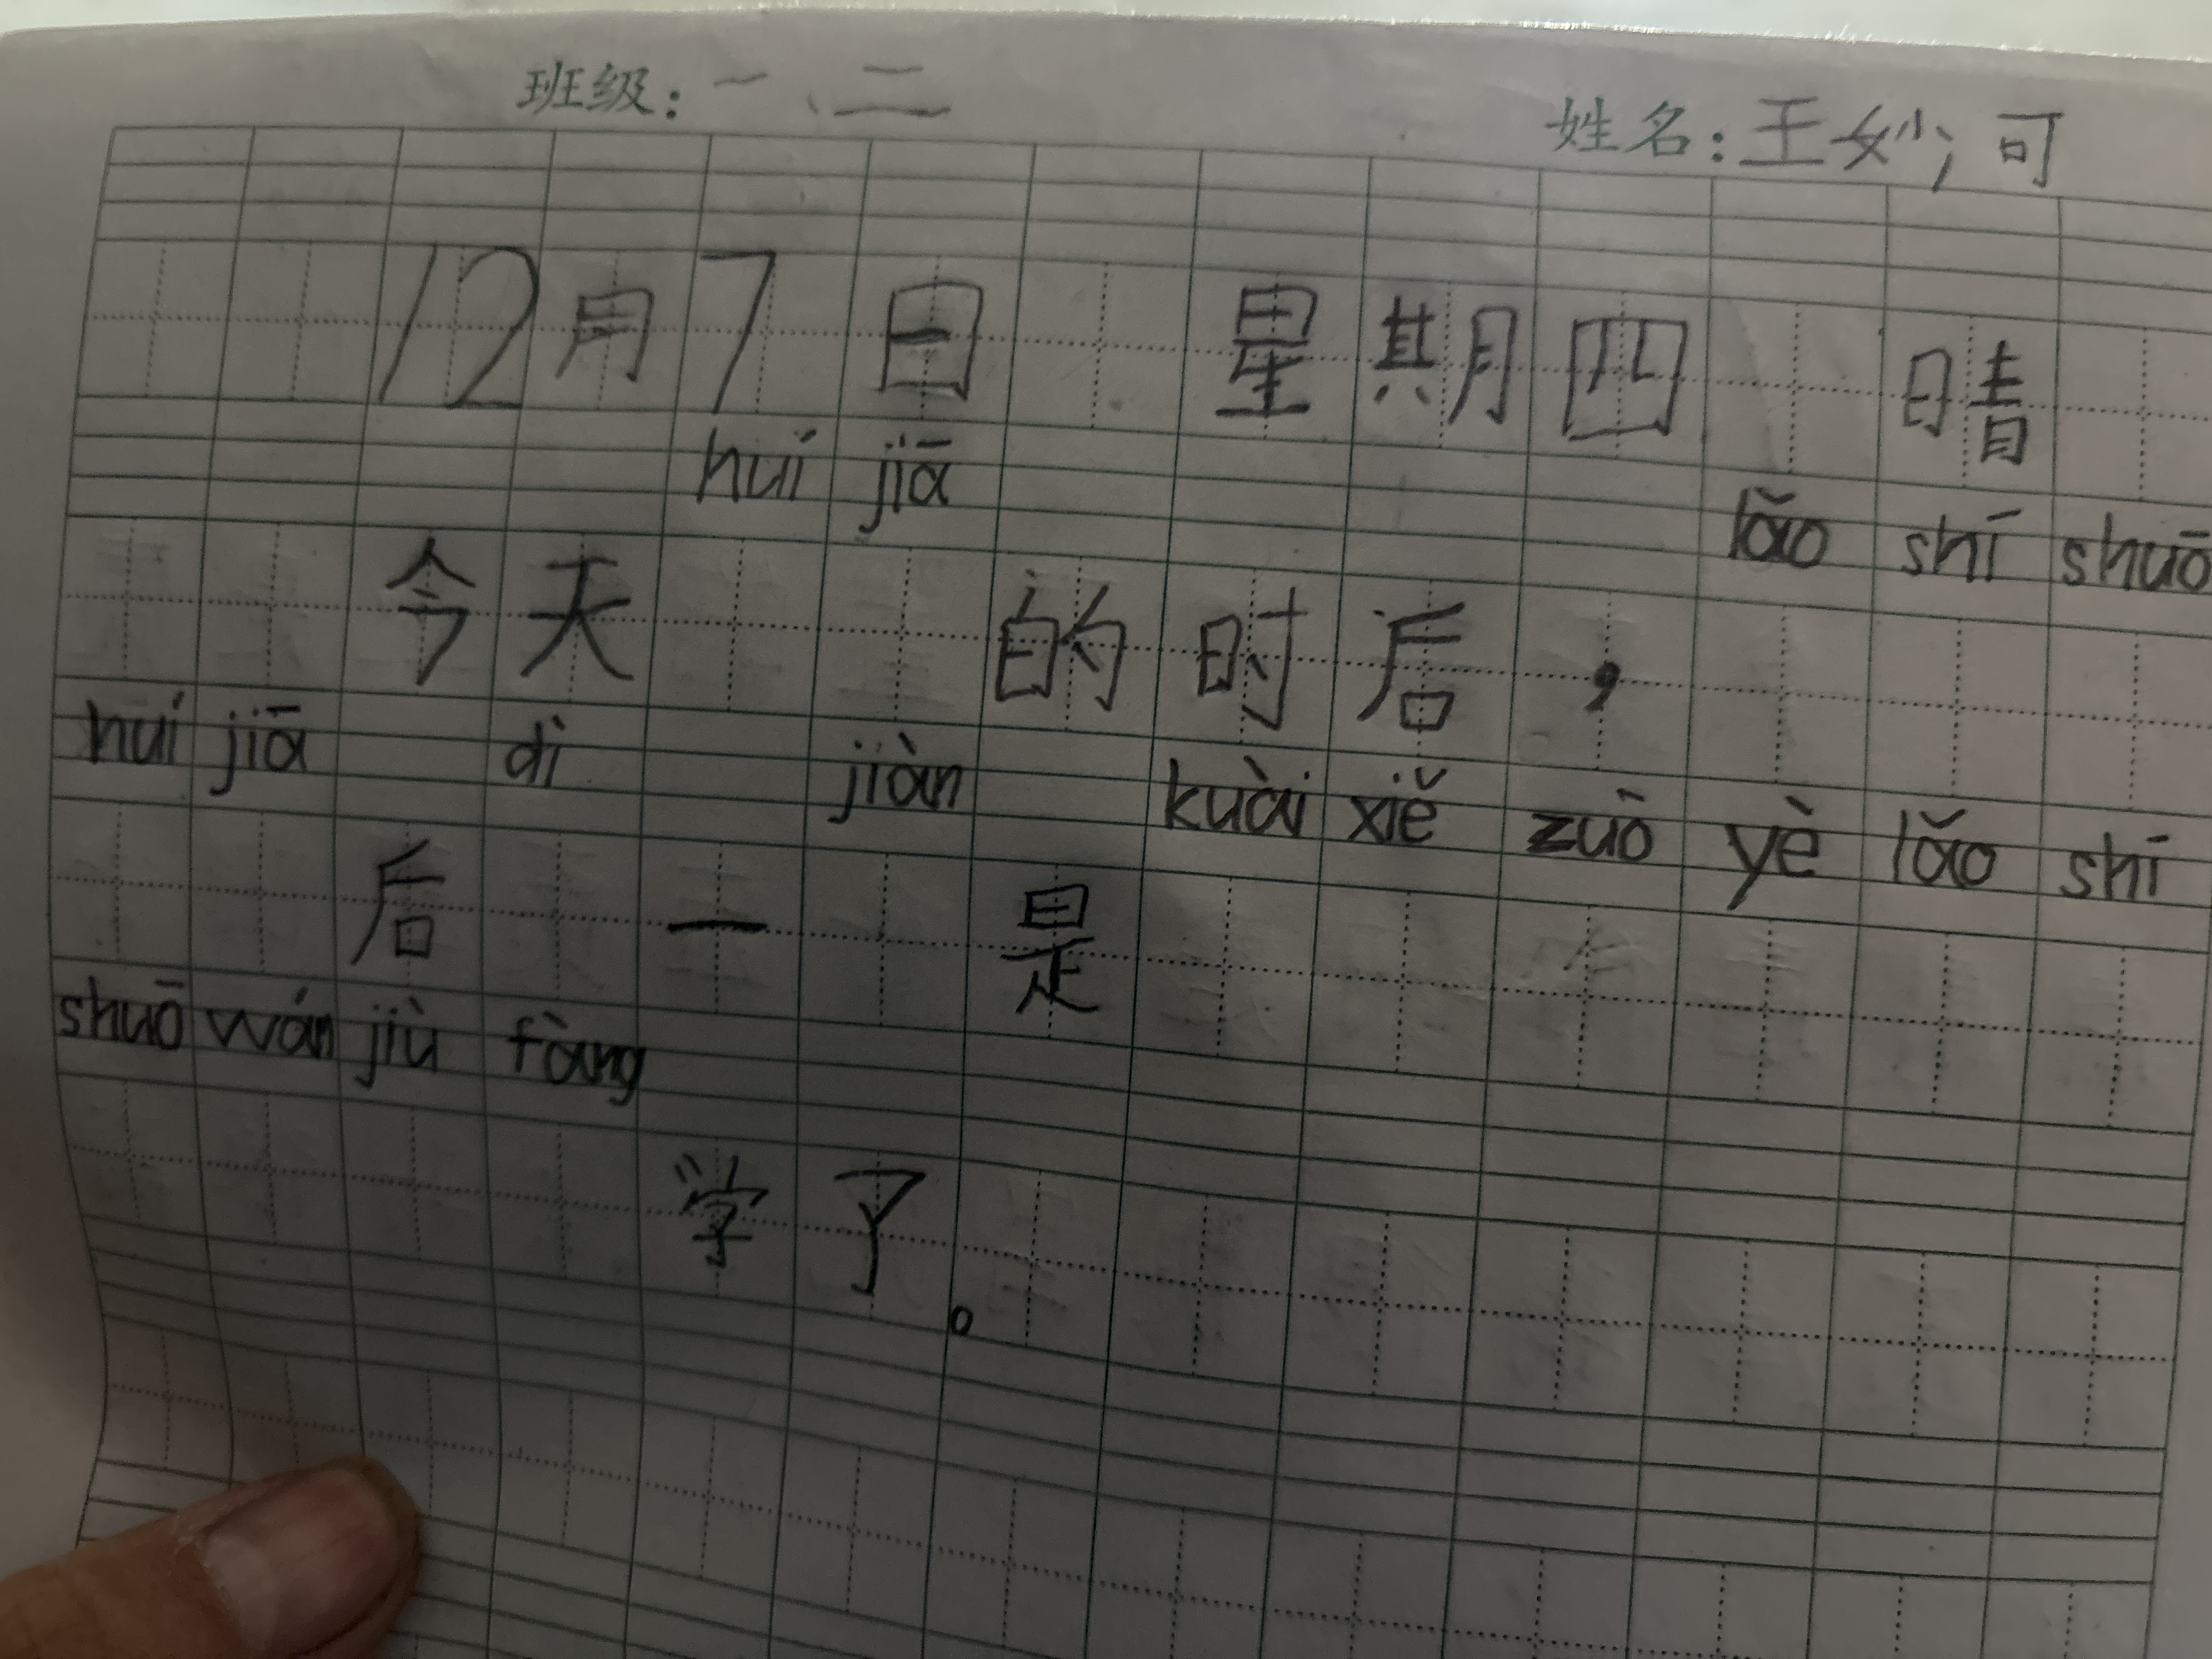 班级：一、二 姓名：王妙可
12月7日 星期四 晴
今天huí jiā的时后，lǎo shī shuō
huí jiā后dì一jiàn是kuài xiě zuò yè lǎo shī
shuō wán jiù fàng学了。